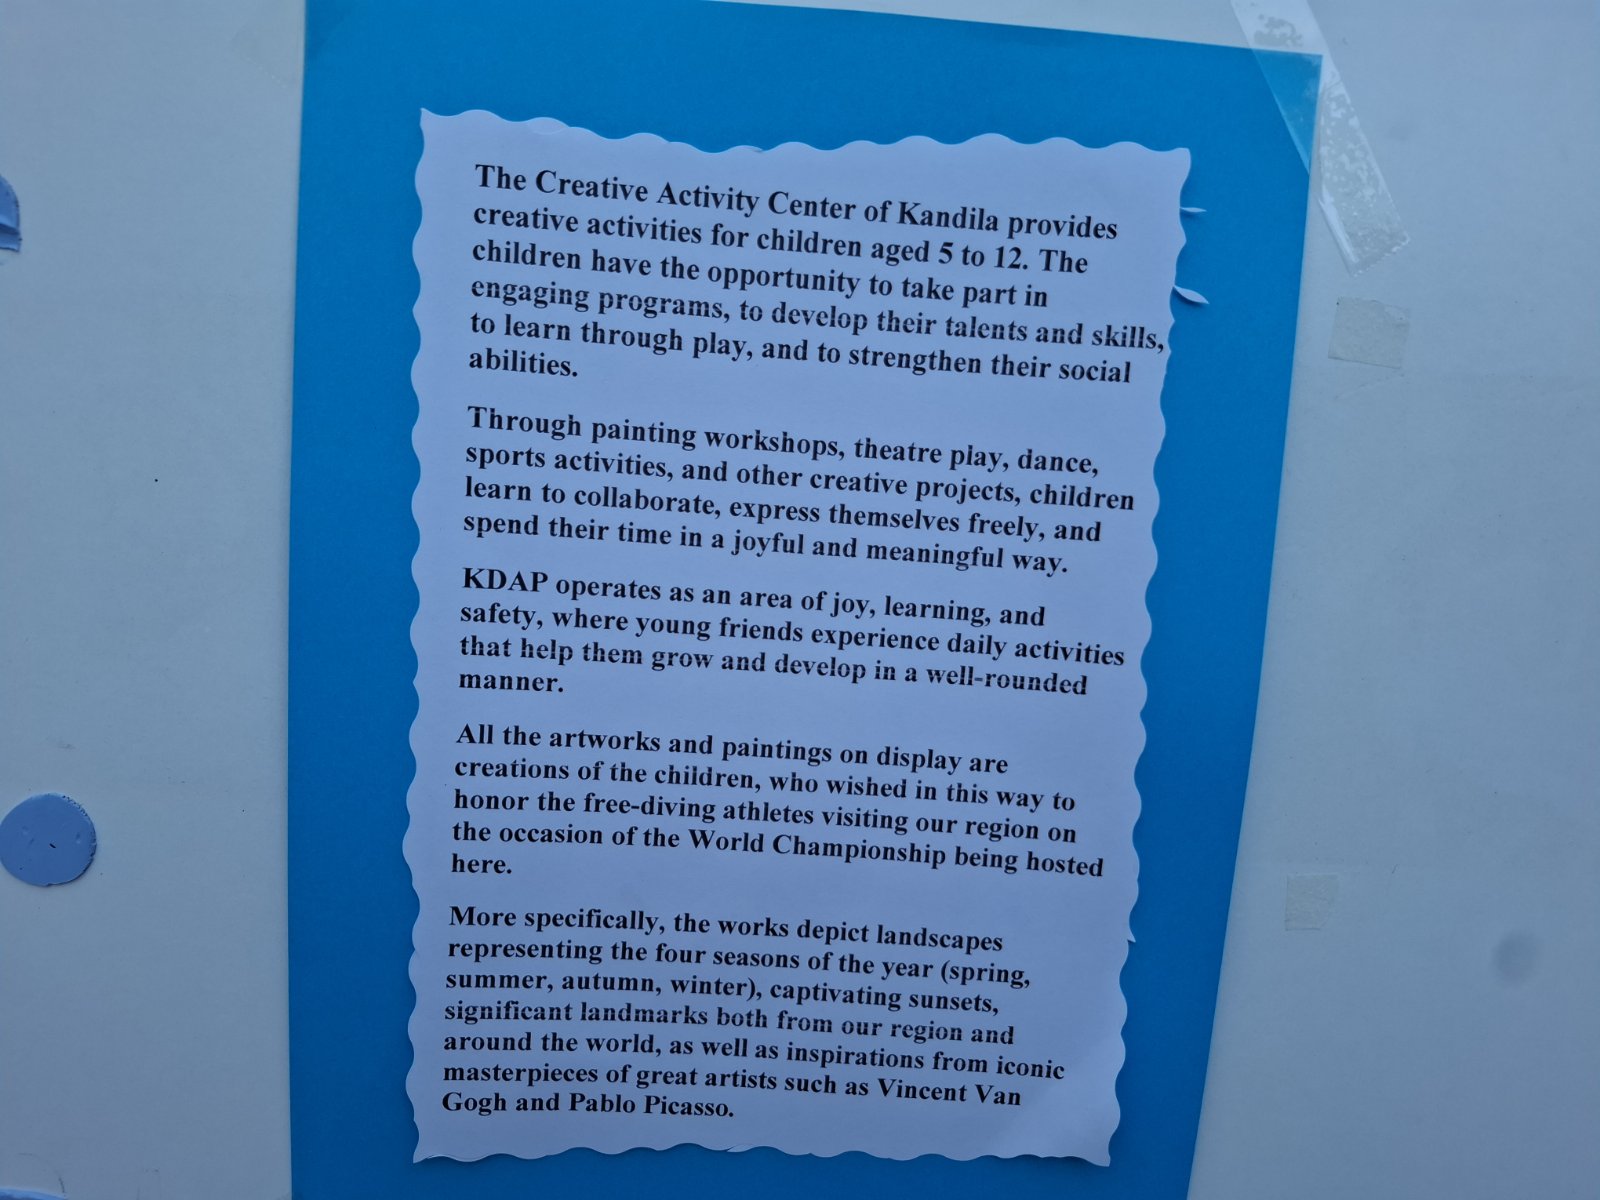 The Creative Activity Center of Kandila provides
creative activities for children aged 5 to 12. The
children have the opportunity to take part in
engaging programs, to develop their talents and skills,
to learn through play, and to strengthen their social
abilities.
Through painting workshops, theatre play, dance,
sports activities, and other creative projects, children
learn to collaborate, express themselves freely, and
spend their time in a joyful and meaningful way.
KDAP operates as an area of joy, learning, and
safety, where young friends experience daily activities
that help them grow and develop in a well-rounded
manner.
All the artworks and paintings on display are
creations of the children, who wished in this way to
honor the free-diving athletes visiting our region on
the occasion of the World Championship being hosted
here.
More specifically, the works depict landscapes
representing the four seasons of the year (spring,
summer, autumn, winter), captivating sunsets,
significant landmarks both from our region and
around the world, as well as inspirations from iconic
masterpieces of great artists such as Vincent Van
Gogh and Pablo Picasso.